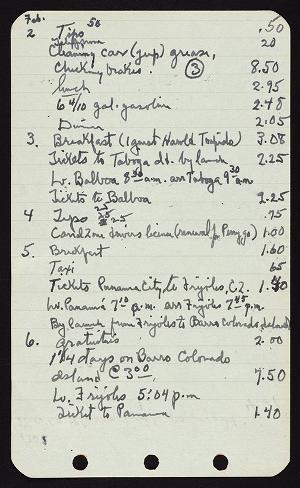 Feb.
2 Tips 50 .50
Telephone 20
Cleaning car (jeep) grease,
Checking brakes. (3) 8.50
lunch 2.95
6 4/10 gal. gasoline 2.48
Dinner 2.05
3. Breakfast (1 guest Harold Trapido) 3.08
Tickets to Taboga Is. by launch 2.25
Lv. Balboa 8 30 a.m. arr Taboga 9 30 a.m
Tickets to Balboa 2.25
4 Tips 25 25 25 .75
Canal Zone drivers license (renewal for Panama) 1.00
5. Breakfast 1.60
Taxi 65
Tickets Panama City to Frijoles, C.Z. 1.40
Lv. Panamá 7 10 p.m. arr Frijoles 7 45 p.m.
By launch from Frijoles to Barro Colorado Island
6. gratuities 2.00
1 1/4 days on Barro Colorado
Island @ 3 00 7.50
Lv. Frijoles 5:04 p.m
Ticket to Panama 1.40